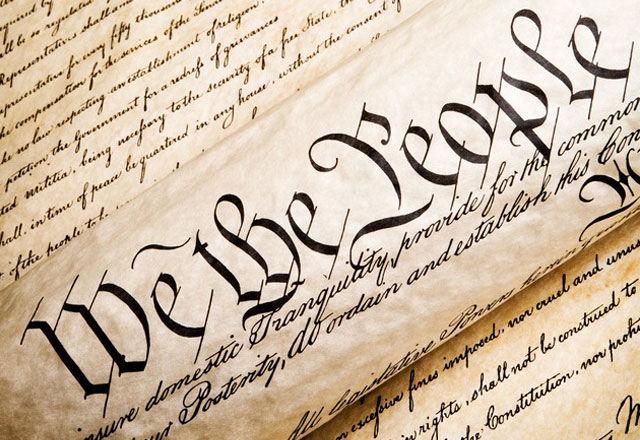 shall be so regulated
Representatives shall
Representative for every fifty thousand
the compensation for the services of the Senate
no law respecting an establishment of religion
petition the Government for a redress of grievances
Militia, being necessary to the security of a free State, the
shall, in time of peace be quartered in any house, without the consent of
of the people to be
We the People
insure domestic Tranquility, provide for the common
our Posterity, do ordain and establish this Con
All legislative Powers herein
excessive fines imposed, nor cruel and unus
in rights, shall not be construed to
the Constitution, nor prohi